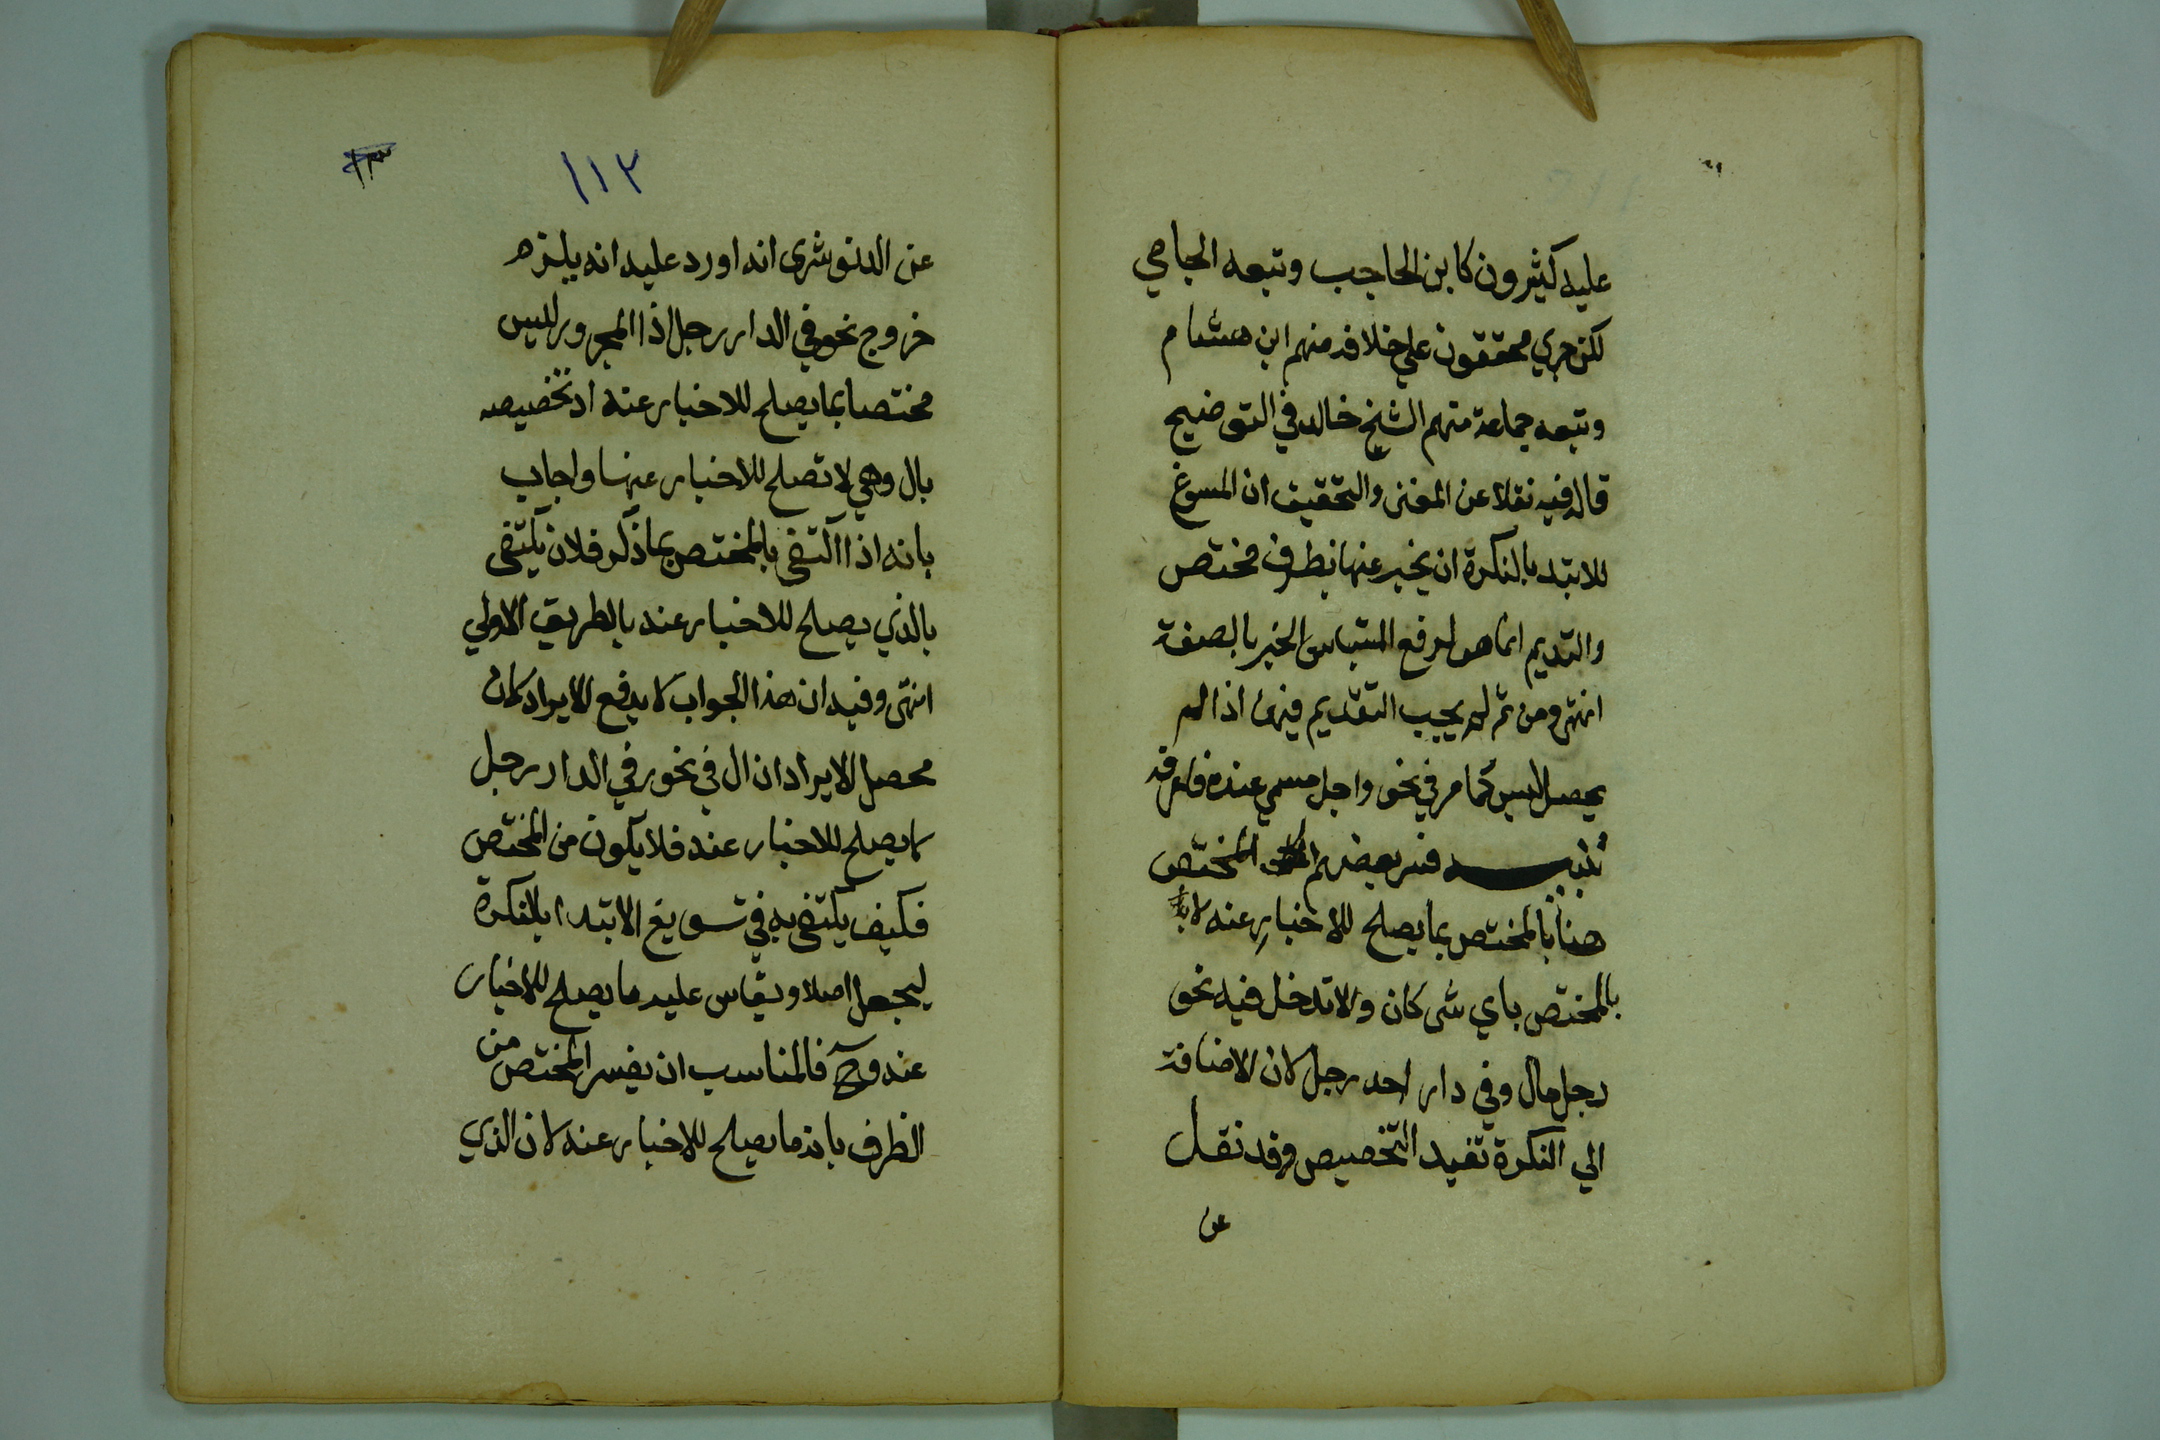 عليه كثيرون كابن الحاجب وتبعه الجامي
لكن جري محققون علي خلافه منهم ابن هشام
وتبعه جماعة منهم الشيخ خالد في التوضيح
قال فيه نقلا عن المغني والتحقيق ان المسوغ
للابتدا بالنكرة ان يخبر عنها بظرف مختص
والتديم انما هو لرفع التباس الخبر بالصفة
انتهي ومن ثم لم يجب التقديم فيها اذا لم
يحصل لبس كما مر في نحو واجل مسمي عنده فاعرفه
تنبيه فسر بعضهم المختص
هنا بالمختص بما يصلح للاخبار عنه لا
بالمختص باي شي كان والا تدخل فيه نحو
رجل مال وفي دار احد رجل لان الاضافة
الي النكرة تفيد التخصيص وقد نقل
عن
١١٢
عن الدنوشري انه اورد عليه انه يلزم
خروج نحو في الدار رجل اذ المجرور ليس
مختصا بما يصلح للاخبار عنه اذ تخصيصه
بال وهي لا تصلح للاخبار عنها واجاب
بانه اذا اكتفي بالمختص بما ذكر فلان يكتفي
بالذي يصلح للاخبار عنه بالطريق الاولي
انتهي وفيه ان هذا الجواب لا يدفع الايراد لان
محصل الايراد ان ال في نحو في الدار رجل
لا يصلح للاخبار عنه فلا يكون من المختص
فكيف يكتفي به في تسويغ الابتداء بالنكرة
ليجعل اصلا ويقاس عليه ما يصلح للاخبار
عنه وح فالمناسب ان يفسر المختص من
الظرف بانه ما يصلح للاخبار عنه لان الذي